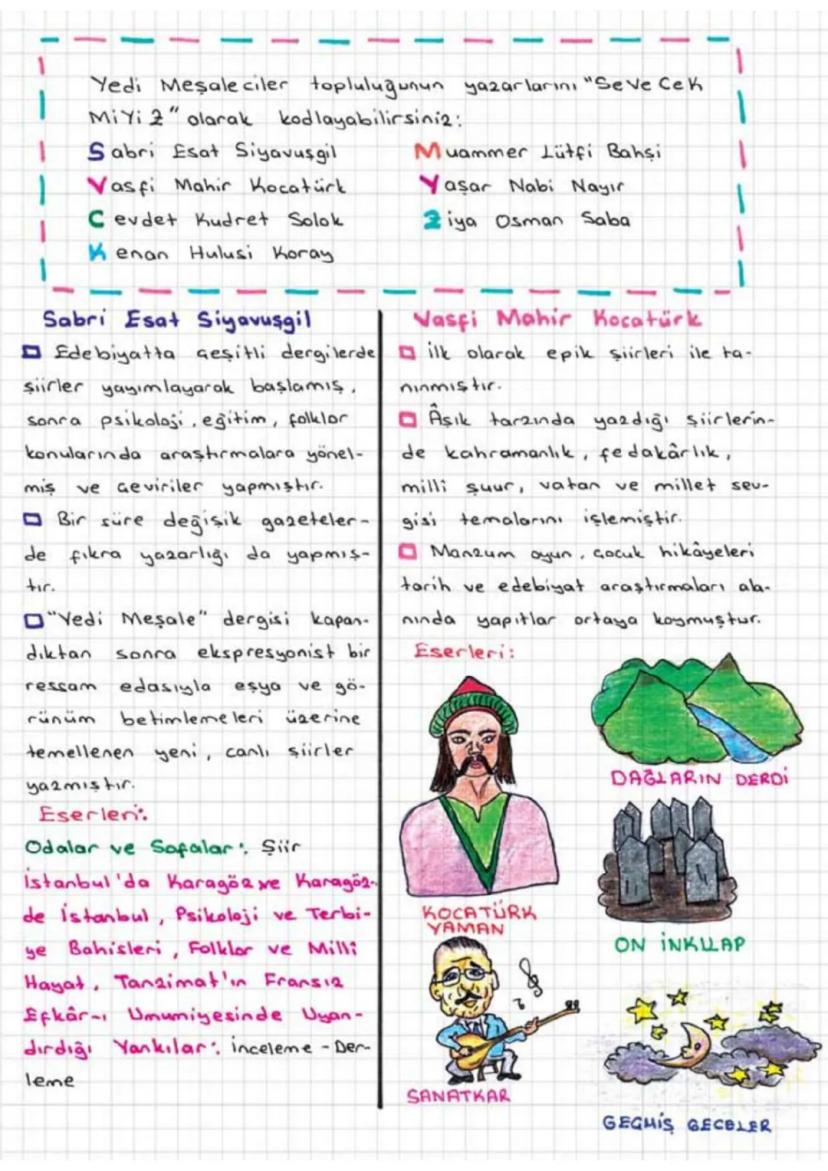 Yedi Meşaleciler topluluğunun yazarlarını "SeVe CeK
MiYi Z" olarak kodlayabilirsiniz:
Sabri Esat Siyavuşgil
Vasfi Mahir Kocatürk
Cevdet Kudret Solok
Kenan Hulusi Koray
Muammer Lütfi Bahşi
Yaşar Nabi Nayır
Ziya Osman Saba
Sabri Esat Siyavuşgil
Edebiyatta çeşitli dergilerde
şiirler yayımlayarak başlamış,
sonra psikoloji, eğitim, folklor
konularında araştırmalara yönel-
miş ve çeviriler yapmıştır.
Bir süre değişik gazeteler-
de fıkra yazarlığı da yapmış-
tır.
"Yedi Meşale" dergisi kapan-
dıktan sonra ekspresyonist bir
ressam edasıyla eşya ve gö-
rünüm betimlemeleri üzerine
temellenen yeni, canlı şiirler
yazmıştır.
Eserleri:
Odalar ve Sofalar: Şiir
İstanbul'da Karagöz ve Karagöz-
de İstanbul, Psikoloji ve Terbi-
ye Bahisleri, Folklor ve Milli
Hayat, Tanzimat'ın Fransız
Efkâr-ı Umumiyesinde Uyan-
dırdığı Yankılar: İnceleme - Der-
leme
Vasfi Mahir Kocatürk
İlk olarak epik şiirleri ile ta-
nınmıştır.
Âşık tarzında yazdığı şiirlerin-
de kahramanlık, fedakârlık,
milli şuur, vatan ve millet sev-
gisi temalarını işlemiştir.
Manzum oyun, çocuk hikâyeleri
tarih ve edebiyat araştırmaları ala-
nında yapıtlar ortaya koymuştur.
Eserleri:
DAĞLARIN DERDİ
KOCATÜRK
YAMAN
ON İNKILAP
SANATKAR
GEÇMİŞ GECELER